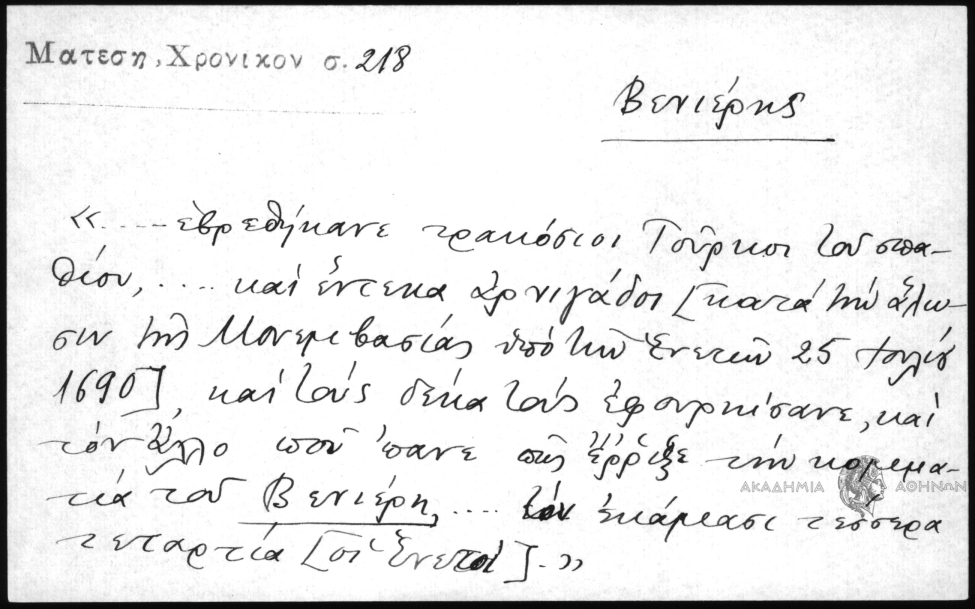 Ματεση, Χρονικον σ. 218
Βενιέρης
«..... ἐβρεθήκανε τρακόσιοι Τοῦρκοι τοῦ σπα-
θίου, .... καί ἕντεκα ἀρνιγάδοι [κατά τήν ἅλω-
σιν τῆς Μονεμβασίας ὑπό τῶν Ἐνετῶν 25 Ἰουλίου
1690], καί τούς δέκα τούς ἐφουρκίσανε, καί
τόν ἄλλο πού 'πανε πῶς ἔρριξε τήν κομμα-
τία τοῦ Βενιέρη, .... τόν ἐκάμασι τέσσερα
τεταρτία [οἱ Ἐνετοί].»
ΑΚΑΔΗΜΙΑ ΑΘΗΝΩΝ